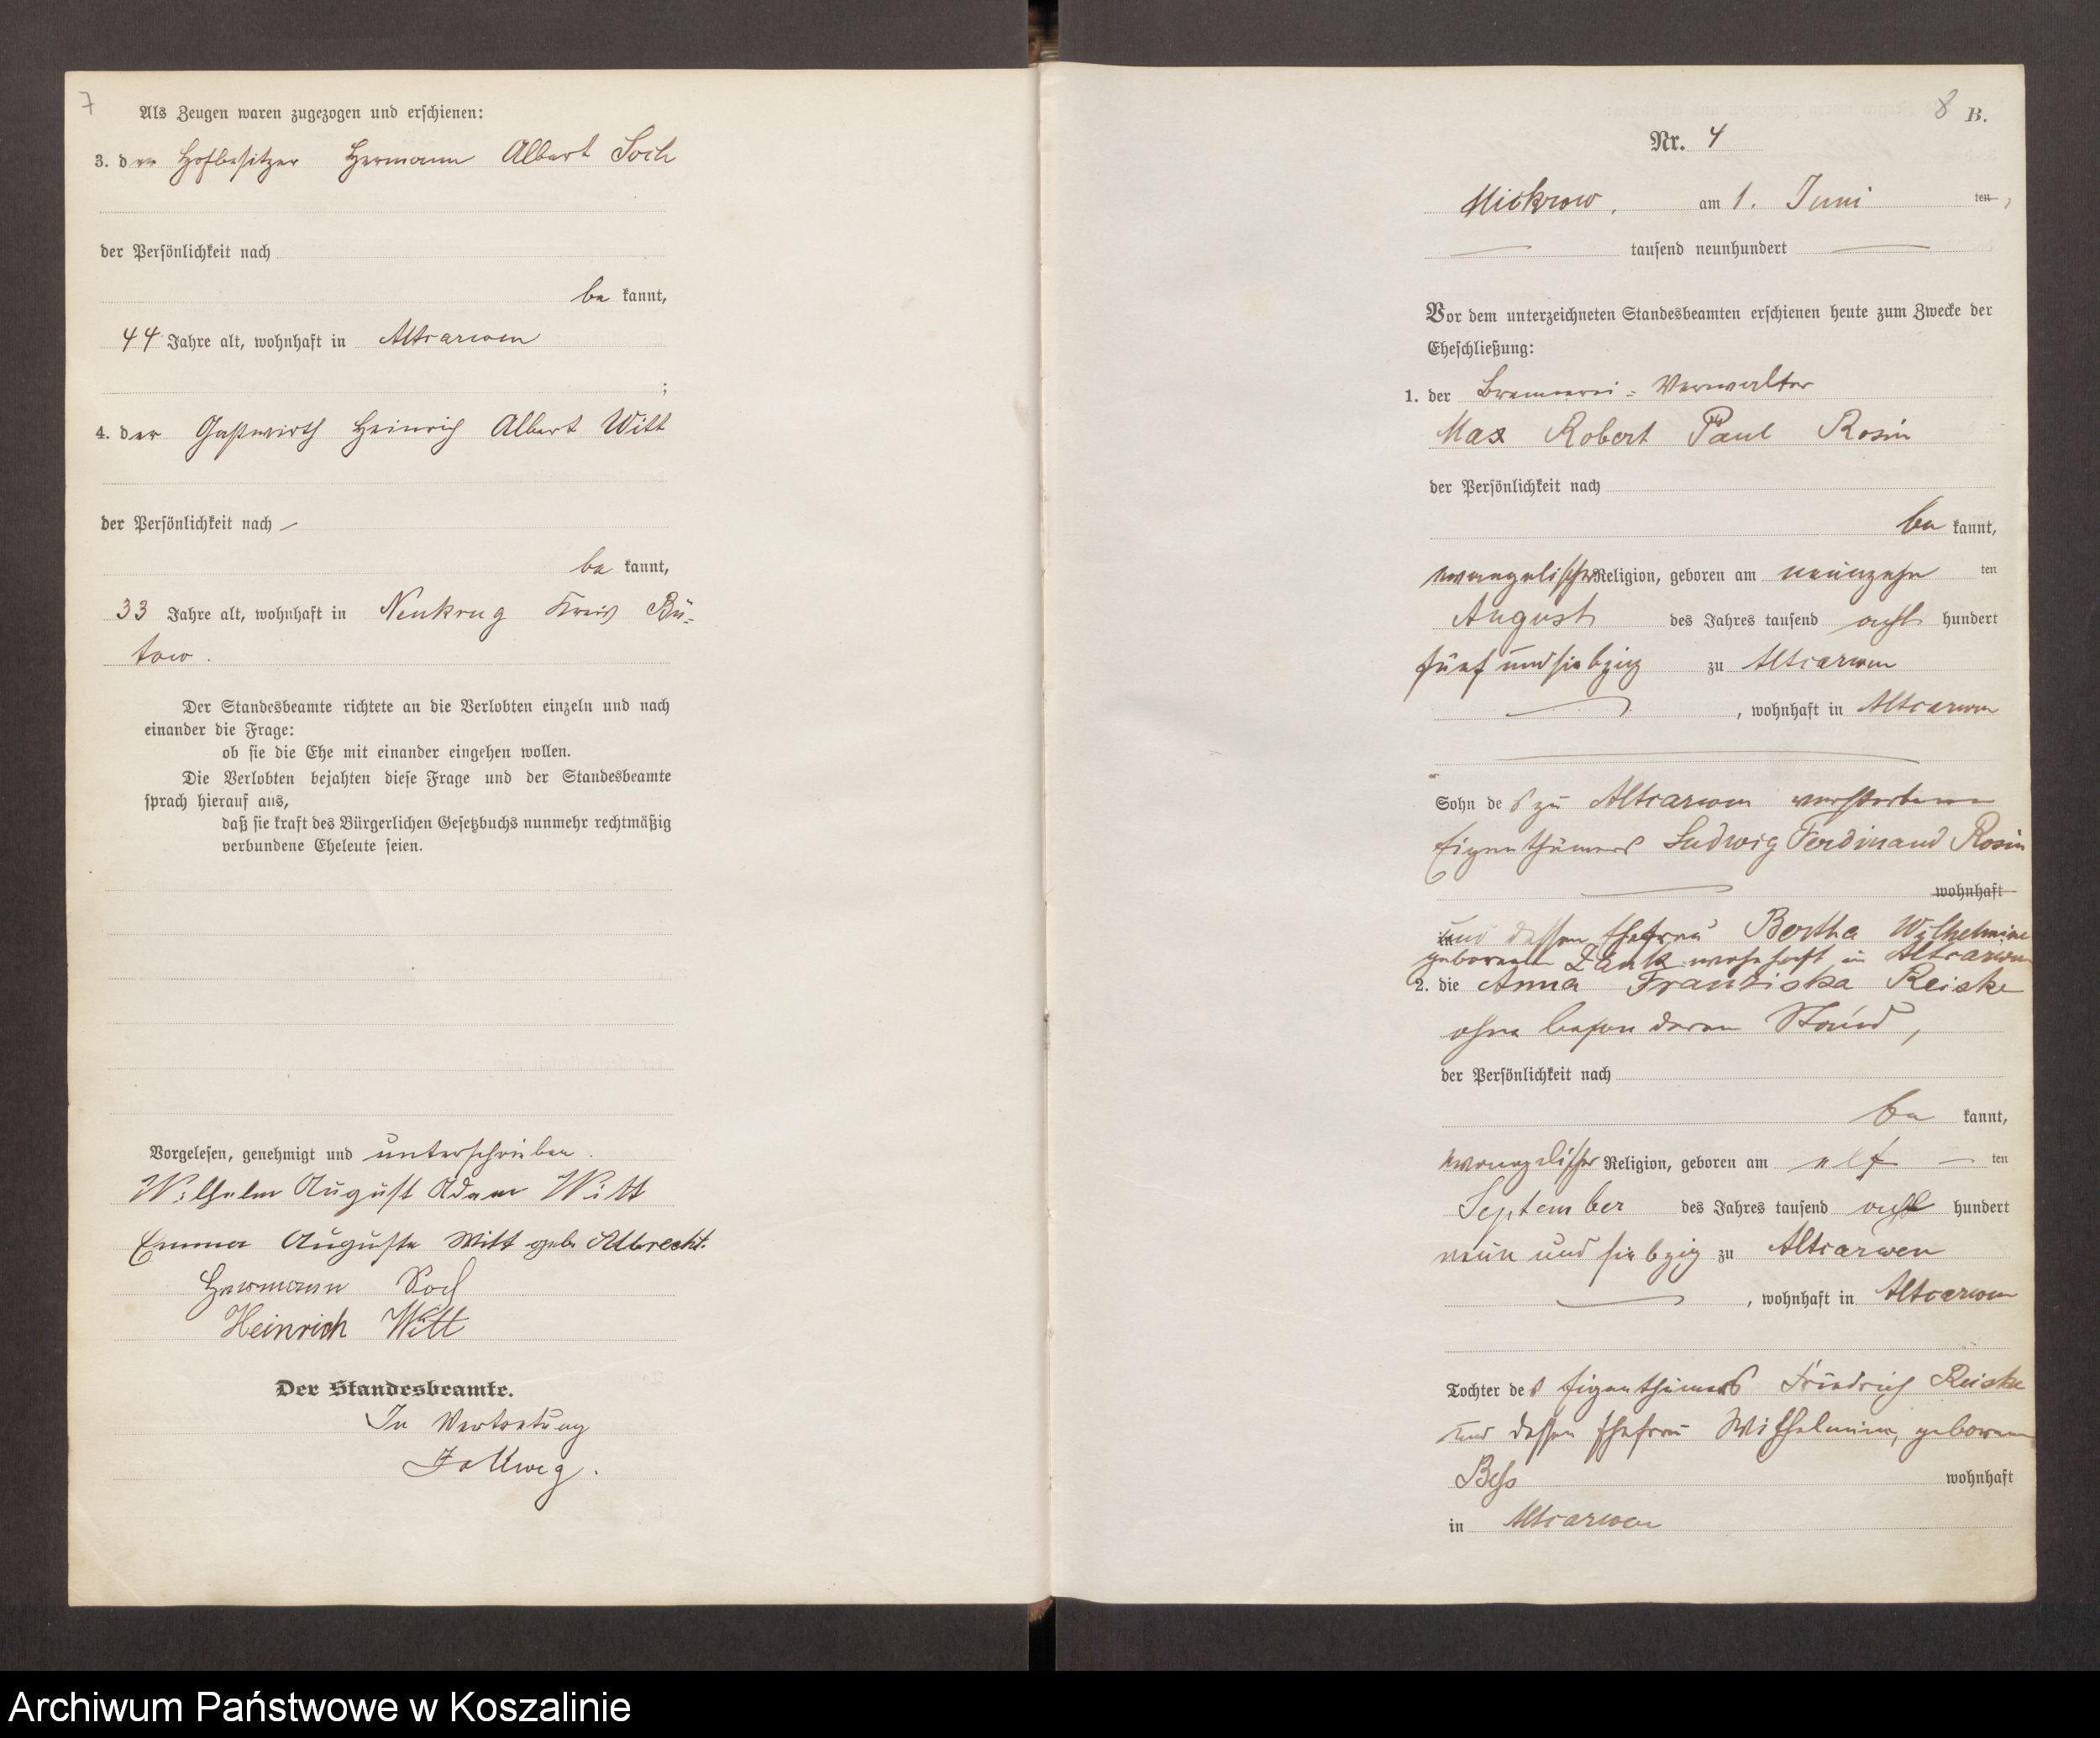 7
Als Zeugen waren zugezogen und erschienen:
3. der Hofbesitzer Hermann Albert Soch
der Persönlichkeit nach
be kannt,
44 Jahre alt, wohnhaft in Altcarwen
;
4. der Gastwirth Heinrich Albert Witt
der Persönlichkeit nach
be kannt,
33 Jahre alt, wohnhaft in Neukrug Kreis Bü-
tow.
Der Standesbeamte richtete an die Verlobten einzeln und nach
einander die Frage:
ob sie die Ehe mit einander eingehen wollen.
Die Verlobten bejahten diese Frage und der Standesbeamte
sprach hierauf aus,
daß sie kraft des Bürgerlichen Gesetzbuchs nunmehr rechtmäßig
verbundene Eheleute seien.
Vorgelesen, genehmigt und unterschrieben.
Wilhelm August Adam Witt
Emma Auguste Witt geb. Albrecht.
Hermann Soch
Heinrich Witt
Der Standesbeamte.
In Vertretung
8 B.
Nr. 4
Mickrow, am 1. Juni ten,
tausend neunhundert
Vor dem unterzeichneten Standesbeamten erschienen heute zum Zwecke der
Eheschließung:
1. der Brennerei-Verwalter
Max Robert Paul Rosin
der Persönlichkeit nach
be kannt,
evangelischer Religion, geboren am neunzehn ten
August des Jahres tausend acht hundert
fünf und siebzig zu Altcarwen
, wohnhaft in Altcarwen
Sohn des zu Altcarwen verstorbenen
Eigenthümers Ludwig Ferdinand Rosin
wohnhaft
und dessen Ehefrau Bertha Wilhelmine
geborenen Zank wohnhaft in Altcarwen
2. die Anna Franziska Reiske
ohne besonderen Stand,
der Persönlichkeit nach
be kannt,
evangelischer Religion, geboren am elf ten
September des Jahres tausend acht hundert
neun und siebzig zu Altcarwen
, wohnhaft in Altcarwen
Tochter des Eigenthümers Friedrich Reiske
und dessen Ehefrau Wilhelmine, geborene
wohnhaft
in Altcarwen
Archiwum Państwowe w Koszalinie